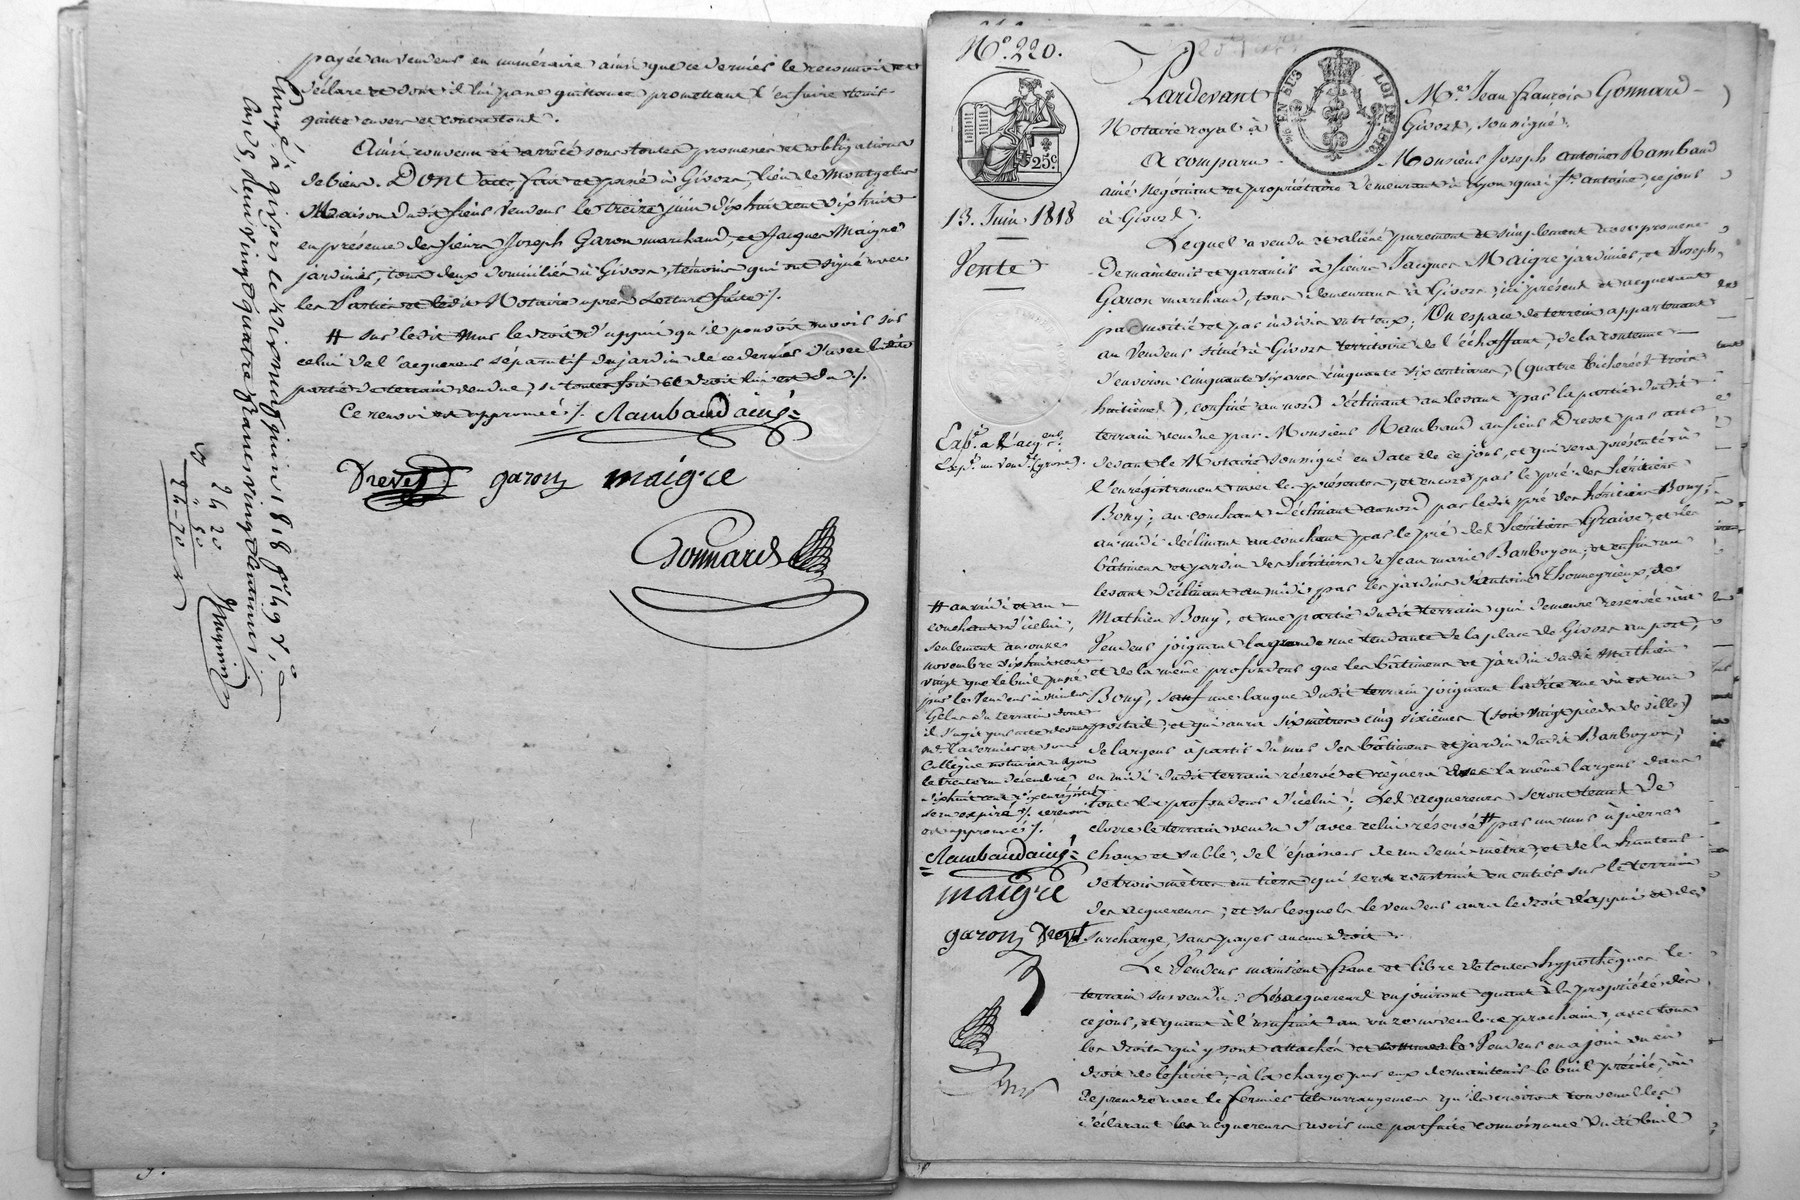 payée au vendeur en numéraire ainsi que ce dernier le reconnoit et
déclare et dont il lui passe quittance promettant l'en faire tenir
quitte envers et contre tout.
Ainsi convenu et arrêté sous toutes promesses et obligations
de biens. Dont acte, fait et passé à Givors, lieu de Montgelas
Maison dudit sieur vendeur le treize juin dixhuit cent dixhuit
en présence des sieurs Joseph Garon marchand, et Jacques Maigre
jardinier, tous deux domiciliés à Givors, témoins qui ont signé avec
les Parties et ledit Notaire après Lecture faite /.
# sur ledit mur le droit d'appui qu'il pouvoit avoir sur
celui de l'acquereur séparatif du jardin de ce dernier d'avec ladite
partie de terrain vendue, si toutefois ce droit lui est du /.
Ce renvoi est approuvé /. Rambaud ainé
Drevet garon maigre
Gonnard
Enregé à givors le vingt juin 1818 f° 49 v°,
reçu deux cent quatre francs vingt centimes
24 20
Nº 220.
25c
13. Juin 1818
Vente
LOI DE 1816
Pardevant Me Jean françois Gonnard
Notaire royal à Givors, soussigné
A comparu Monsieur Joseph antoine Rambaud
ainé négociant et propriétaire demeurant à Lyon quai St antoine, ce jour
à Givors;
Lequel a vendu et aliéné purement et simplement avec promesse
de maintenir et garantir à sieurs Jacques Maigre jardinier, et Joseph
Garon marchand, tous demeurans à Givors, ici présent et acquerant
par moitié et par indivis entr'eux; Un espace de terrain appartenant
au Vendeur situé à Givors territoire de l'échaffaut, de la contenue
d'environ cinquante six ares cinquante six centiares, (quatre bicherées trois
huitièmes), confiné au nord déclinant au levant par la partie dudit
terrain vendue par Monsieur Rambaud au sieur Drevet par acte
devant le Notaire soussigné en date de ce jour, et qui sera présenté à
l'enregistrement avec le présent, et encore par le pré des héritiers
Bony; au couchant déclinant au nord par ledit pré des héritiers Bony;
au midi déclinant au couchant par le pré des héritiers Graive, et les
bâtimens et jardin des héritiers de Jean marie Barboyon; et enfin au
levant déclinant au midi par les jardins d'antoine Thoumeyrieux, de
Mathieu Bony, et une partie dudit terrain qui demeure reservée au
Vendeur joignant la grande rue tendante de la place de Givors au port,
et de la même profondeur que les bâtimens et jardin dudit Mathieu
Bony, sauf une langue dudit terrain joignant ladite rue où est un
portail, et qui aura six mètres cinq sixièmes (soit vingt pieds de ville)
de largeur à partir du mur des bâtimens et jardin dudit Barboyon,
en midi dudit terrain réservé et règnera avec la même largeur dans
toute la profondeur d'icelui; Les acquereurs seront tenus de
clorre le terrain vendu d'avec celui réservé # par un mur à pierre
chaux et sable, de l'épaisseur de un demi-mètre, et de la hauteur
de trois mètres un tiers qui sera construit en entier sur le terrain
des acquereurs; et sur lesquels le vendeur aura le droit d'appui et de
surcharge, sans payer aucun droit.
Le Vendeur maintient franc et libre de toutes hypothèques le
terrain sus vendu. Les acquereurs en jouiront quant à la propriété dès
ce jour, et quant à l'usufruit au onze novembre prochain, avec tous
les droits qui y sont attachés et comme le Vendeur en a joui ou eu
droit de le faire, à la charge par eux de maintenir le bail précité, ou
de prendre avec le fermier tels arrangemens qu'ils croiront convenables
déclarant les acquereurs avoir une parfaite connoissance dudit bail
Expé à l'acqr
Exp. au vendr (grosse).
# au midi et au
couchant d'icelui,
seulement au onze
novembre dixhuit cent
vingt que le bail passé
par le Vendeur à sieur
Gelas du terrain dont
il s'agit par acte devant
Me Lavernier et son
Collègue notaires à Lyon
le trente un décembre
dixhuit cent
sera expiré /. ce renvoi
est approuvé /.
Rambaud ainé
maigre
garon Drevet